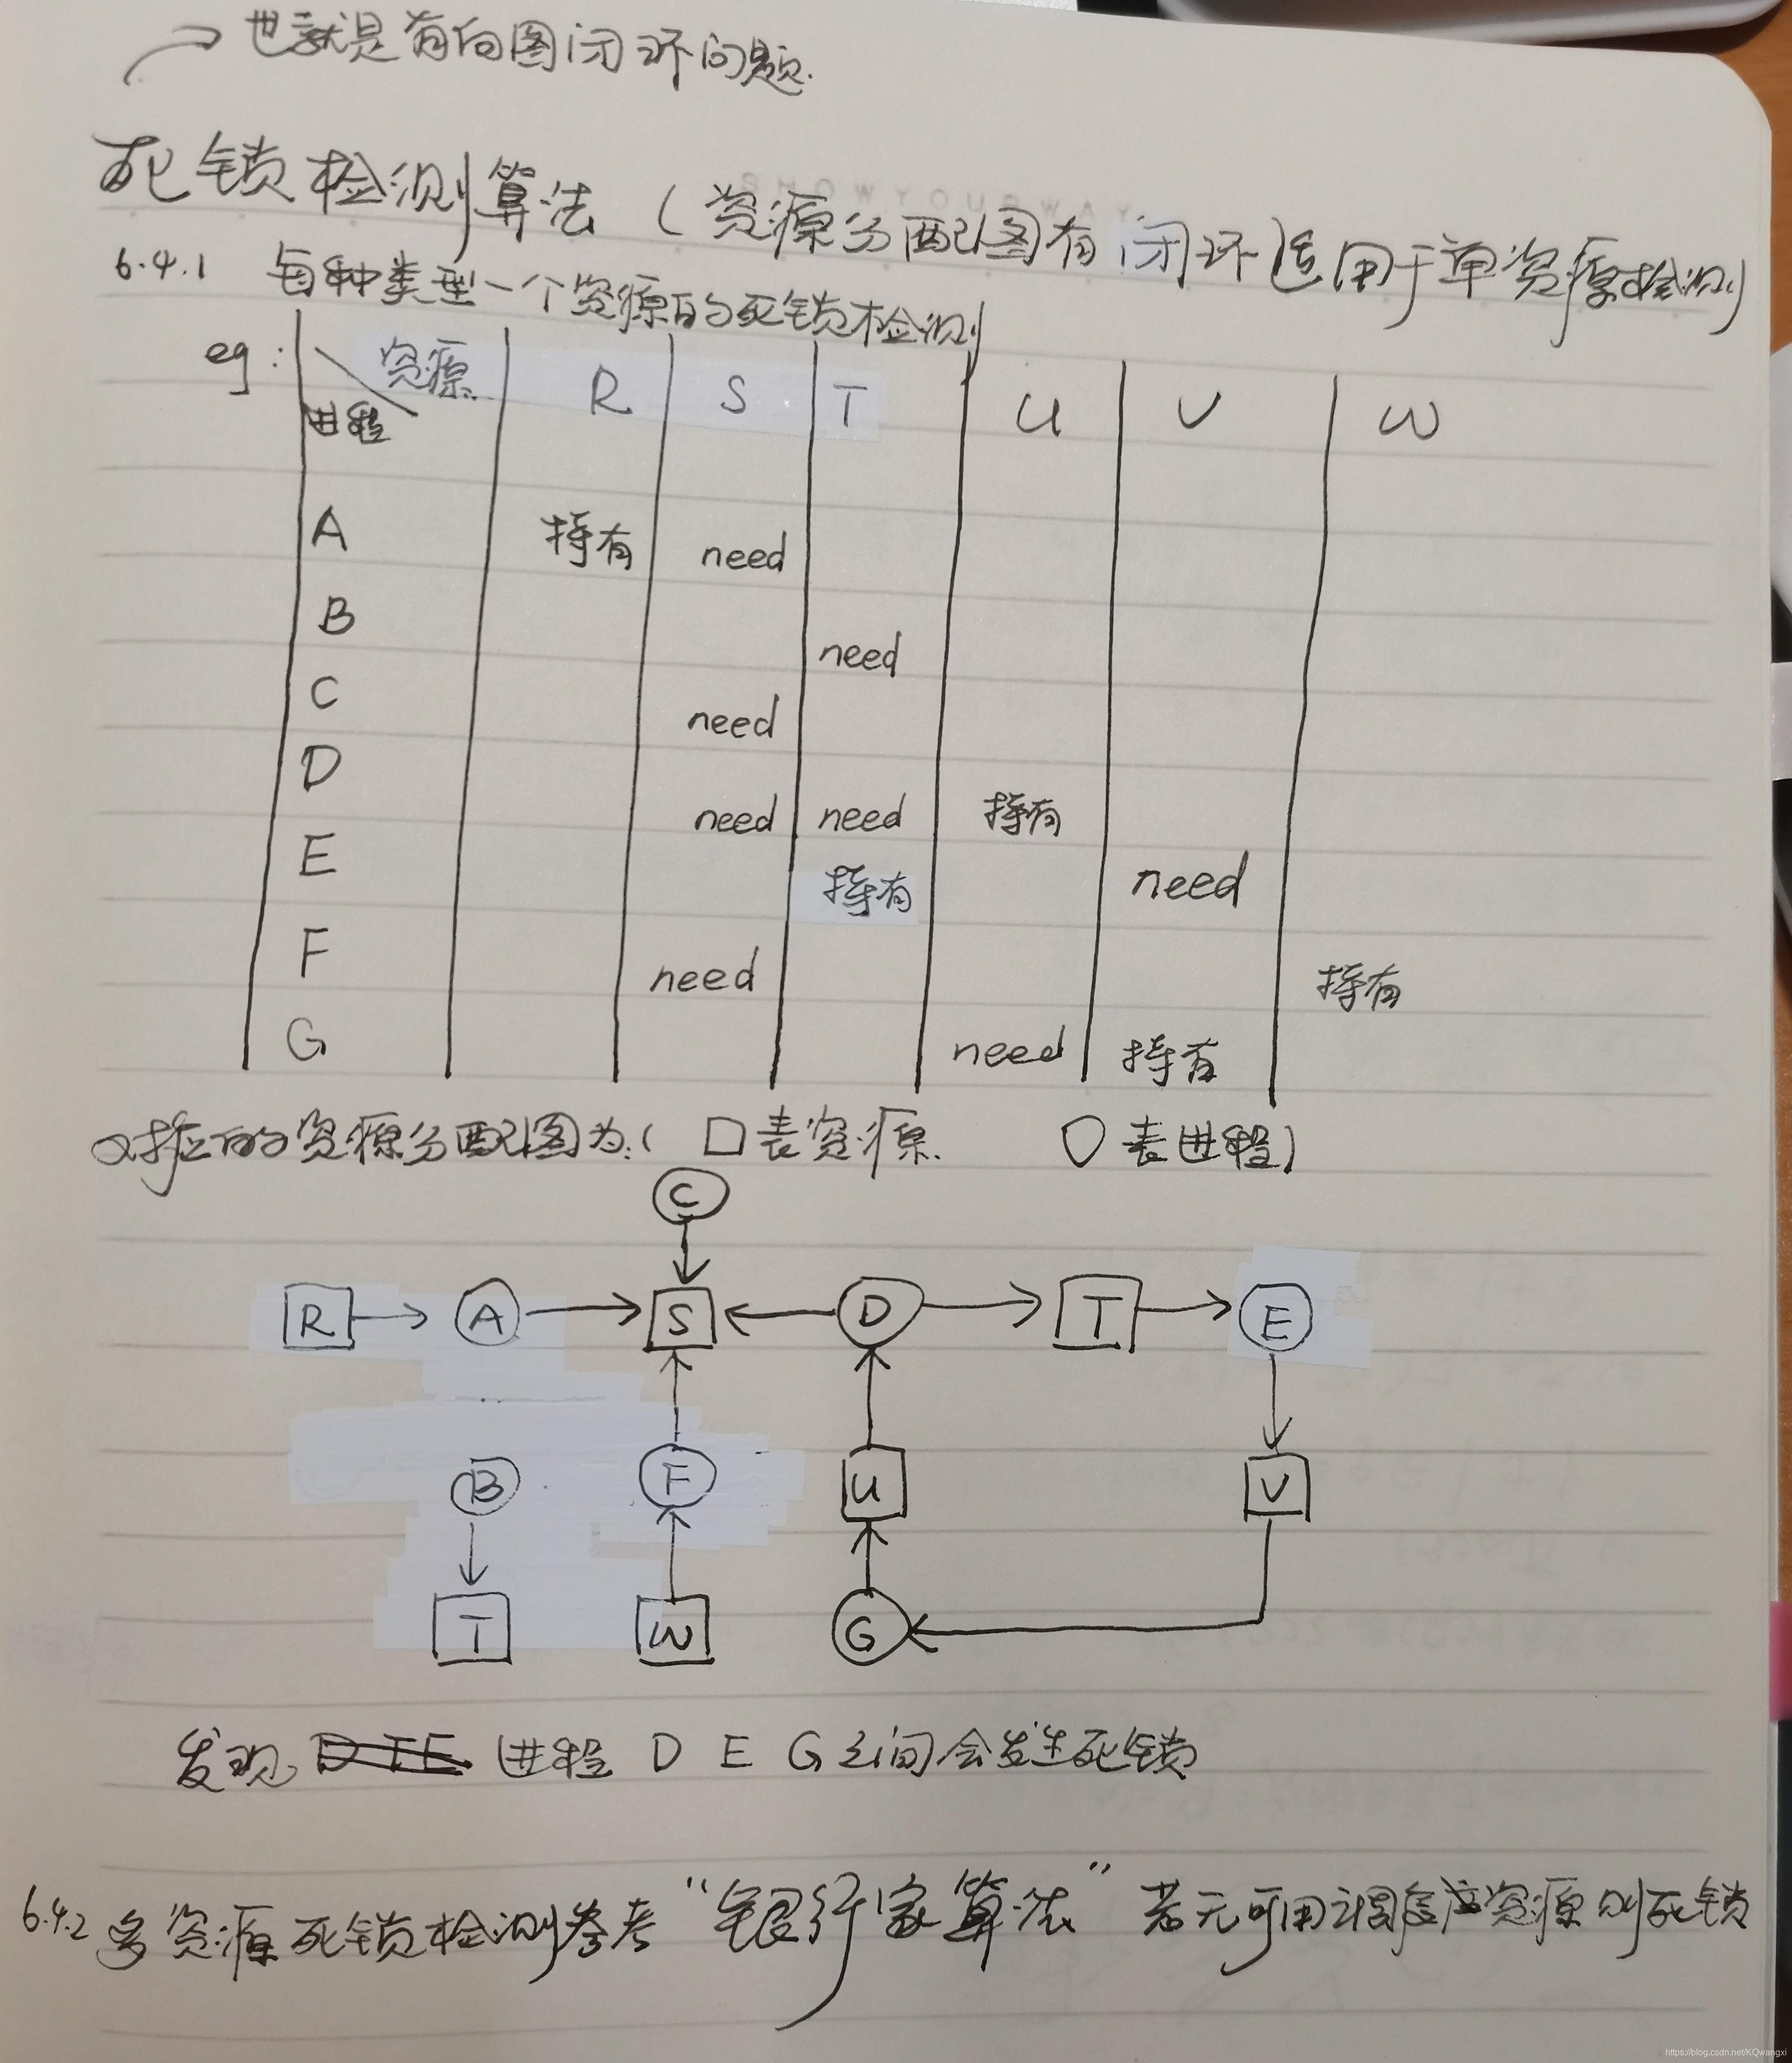 也就是有向图闭环问题.
死锁检测算法（资源分配图有闭环适用于单资源检测
6.4.1 每种类型一个资源的死锁检测
eg: 资源 R S T U V W
进程
A 持有 need
B need
C need
D need need 持有
E 持有 need
F need 持有
G need 持有
对应的资源分配图为:( 口表资源. 〇表进程)
C
R A S D T E
B F U V
T W G
发现 进程 D E G之间会发生死锁
6.4.2 多资源死锁检测参考“银行家算法”若无可用调度资源则死锁
https://blog.csdn.net/KQwangxi